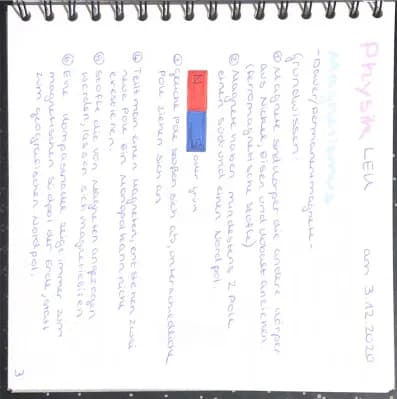 Physik LEU am 3.12.2020
Magnetismus
- Dauer/Permanentmagnete -
Grundwissen:
① Magnete sind Körper die andere Körper
aus Nickel, Eisen und Kobalt anziehen
(ferromagnetische Stoffe)
② Magnete haben mindestens 2 Pole
einen Süd und einen Nordpol.
N S oder grün
③ gleiche Pole stoßen sich ab, unterschiedliche
Pole ziehen sich an
④ Teilt man einen Magneten, entstehen zwei
neue Pole ein Monopol kann nicht
existieren.
⑤ Stoffe die von Magneten angezogen
werden, lassen sich magnetisieren
⑥ Eine Kompassnadel zeigt immer zum
magnetischen Südpol der Erde, statt
zum geografischen Nordpol.
3